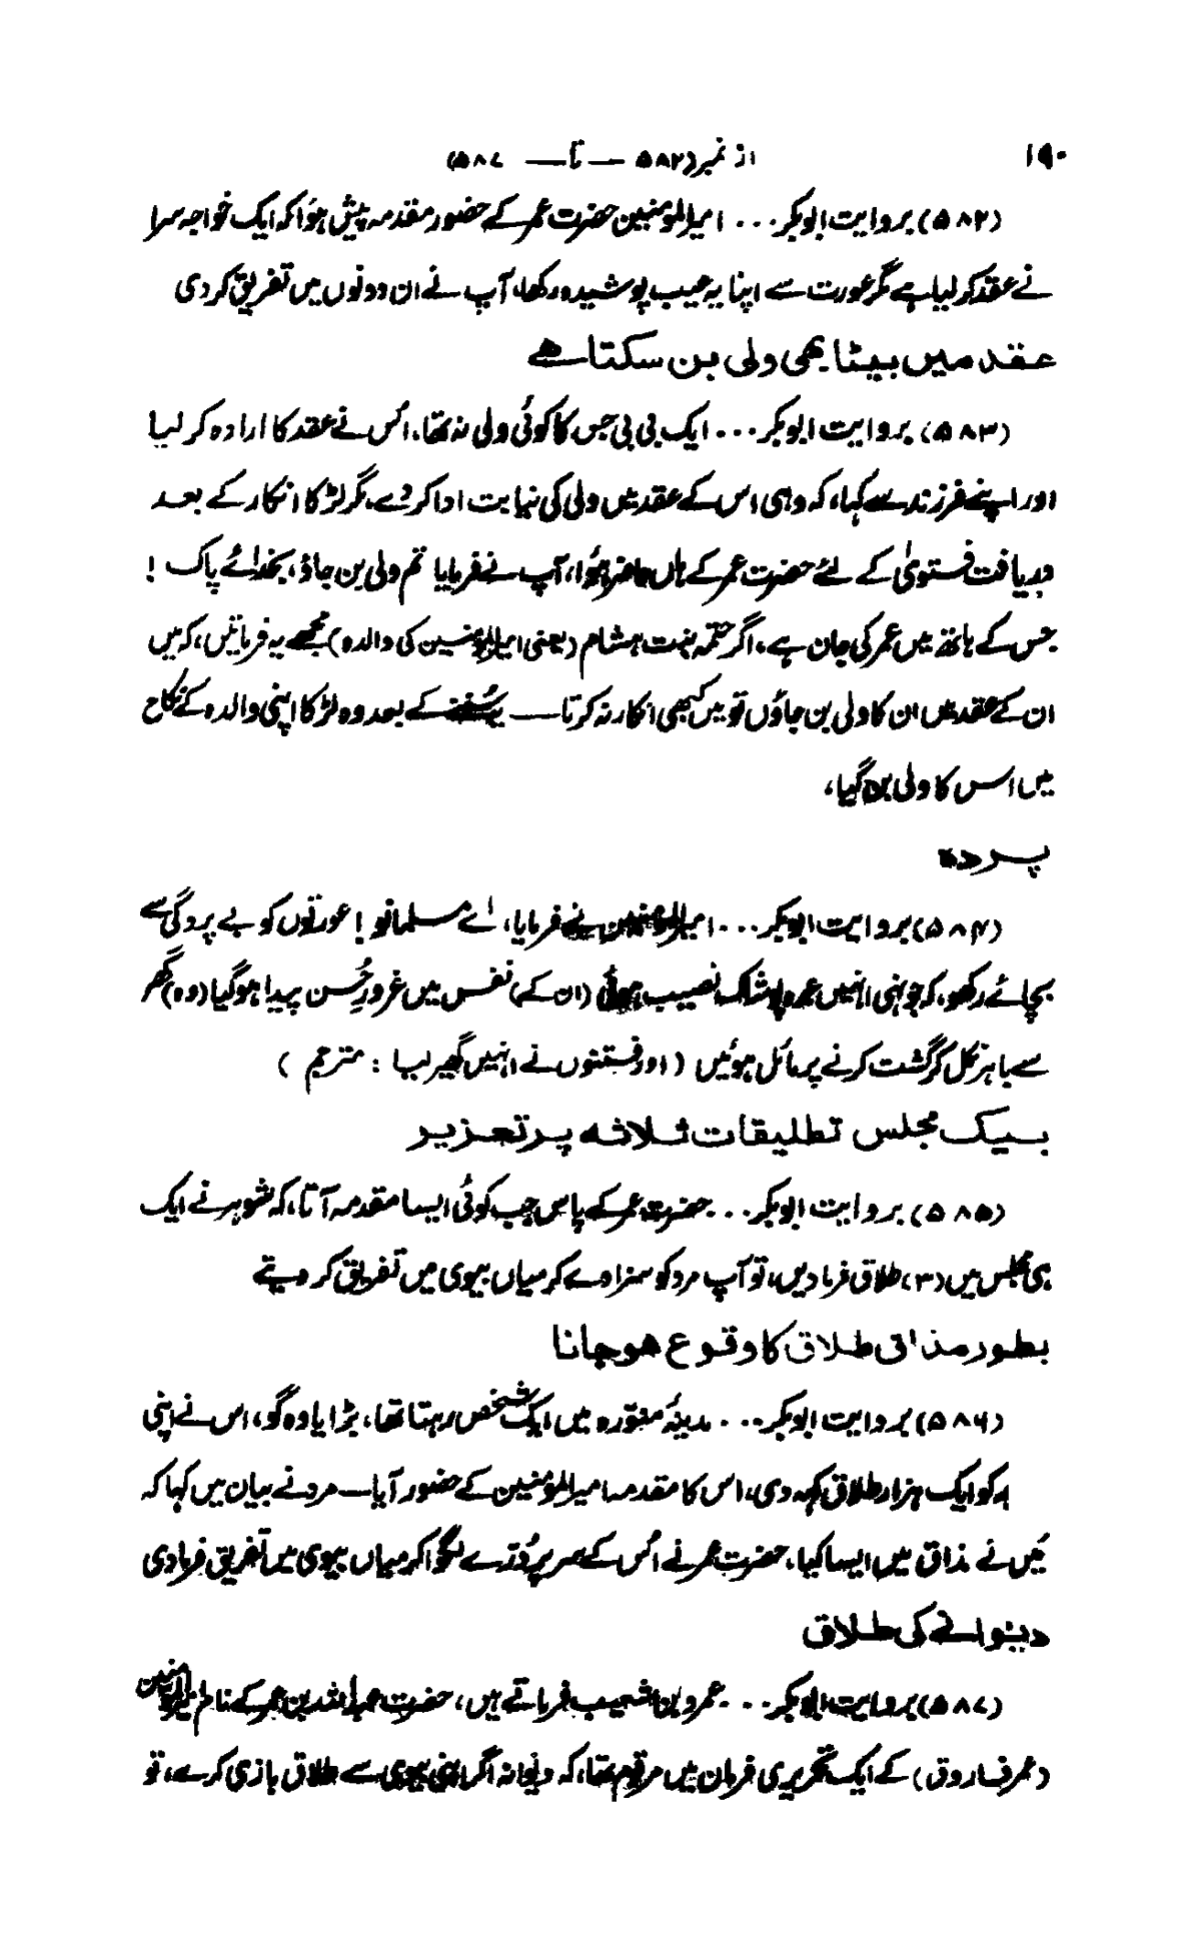 ۱۹۰ از نمبر(۵۸۲ — تا — ۵۸۷)
(۵۸۲) بروایت ابوبکر... امیرالمومنین حضرت عمر کے حضور مقدمہ پیش ہوَا کہ ایک خواجہ سرا
نے عقد کر لیا ہے مگر عورت سے اپنا یہ عیب پوشیدہ رکھا، آپ نے ان دونوں میں تفریق کر دی
عقد میں بیٹا بھی ولی بن سکتا ہے
(۵۸۳) بروایت ابوبکر... ایک بی بی جس کا کوئی ولی نہ تھا، اُس نے عقد کا ارادہ کر لیا
اور اپنے فرزند سے کہا، کہ وہی اس کے عقد میں ولی کی نیابت ادا کر دے، مگر لڑکا انکار کے بعد
دریافت فتویٰ کے لئے حضرت عمر کے ہاں حاضر ہوَا، آپ نے فرمایا تم ولی بن جاؤ، بخدائے پاک !
جس کے ہاتھ میں عمر کی جان ہے، اگر حتمہ بنت ہشام (یعنی امیرالمومنین کی والدہ) مجھے یہ فرمائیں، کہ میں
ان کے عقد میں ان کا ولی بن جاؤں تو میں کبھی انکار نہ کرتا — یہ سُننے کے بعد وہ لڑکا اپنی والدہ کے نکاح
میں اس کا ولی بن گیا،
پردہ
(۵۸۴) بروایت ابوبکر... امیرالمومنین نے فرمایا، اے مسلمانو ! عورتوں کو بے پردگی سے
بچائے رکھو، کہ جونہی انہیں عمدہ پوشاک نصیب ہوئی (ان کے) نفس میں غرورِ حُسن پیدا ہوگیا (وہ) گھر
سے باہر نکل کر گشت کرنے پر مائل ہوئیں (اور فتنوں نے انہیں گھیر لیا : مترجم )
بیک مجلس تطلیقات ثلاثہ پر تعزیر
(۵۸۵) بروایت ابوبکر... حضرت عمر کے پاس جب کوئی ایسا مقدمہ آتا، کہ شوہر نے ایک
ہی مجلس میں (۳) طلاق فرما دیں، تو آپ مرد کو سزا دے کر میاں بیوی میں تفریق کر دیتے
بطور مذاق طلاق کا وقوع ہو جانا
(۵۸۶) بروایت ابوبکر... مدینۂ منوّرہ میں ایک شخص رہتا تھا، بڑا یاوہ گو، اس نے اپنی
کو ایک ہزار طلاق کہہ دی، اس کا مقدمہ امیرالمومنین کے حضور آیا — مرد نے بیان میں کہا کہ
مَیں نے مذاق میں ایسا کیا، حضرت عمر نے اُس کے سر پر دُرّے لگوا کر میاں بیوی میں تفریق فرما دی
دیوانے کی طلاق
(۵۸۷) بروایت ابوبکر... عمرو بن شعیب فرماتے ہیں، حضرت عبداللہ بن عمر کے نام امیرالمومنین
(عمر فاروق) کے ایک تحریری فرمان میں مرقوم تھا، کہ دیوانہ اگر اپنی بیوی سے طلاق بازی کرے، تو